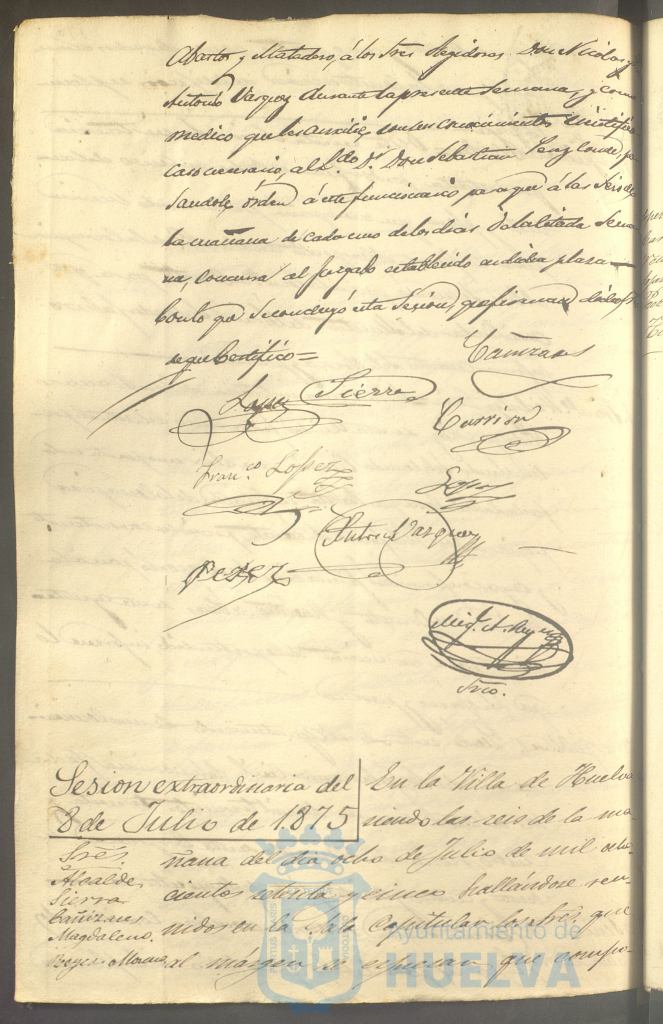 Abastos y Matadero, á los tres Regidores Don Nicolas y
Antonio Vazquez durante la presente Semana, y como
medico que les auxilie con sus conocimientos cientificos
caso necesario, al Ldo. Dr. Don Sebastian Perez Conde,
dandole órden á este funcionario para que á las seis de
la mañana de cada uno de los dias de la citada Sema
na, concurra al Juzgado establecido en dicha plaza
Con lo que se concluyó esta Sesion, que firman
de que Certifico=
Cañizares
Lopez Sierra
Carrion
Franco. Lopez
Lopez
Anto. Vazquez
Perez
Migl. A.
Srio.
Sesion extraordinaria del
8 de Julio de 1875
Sres.
Alcalde
Sierra
Cañizares
Magdaleno
En la Villa de Huelva
siendo las seis de la ma
ñana del dia ocho de Julio de mil ocho
cientos setenta y cinco hallandose reu-
nidos en la Sala Capitular los Sres. que
al margen se espresan que compo-
Ayuntamiento de
HUELVA